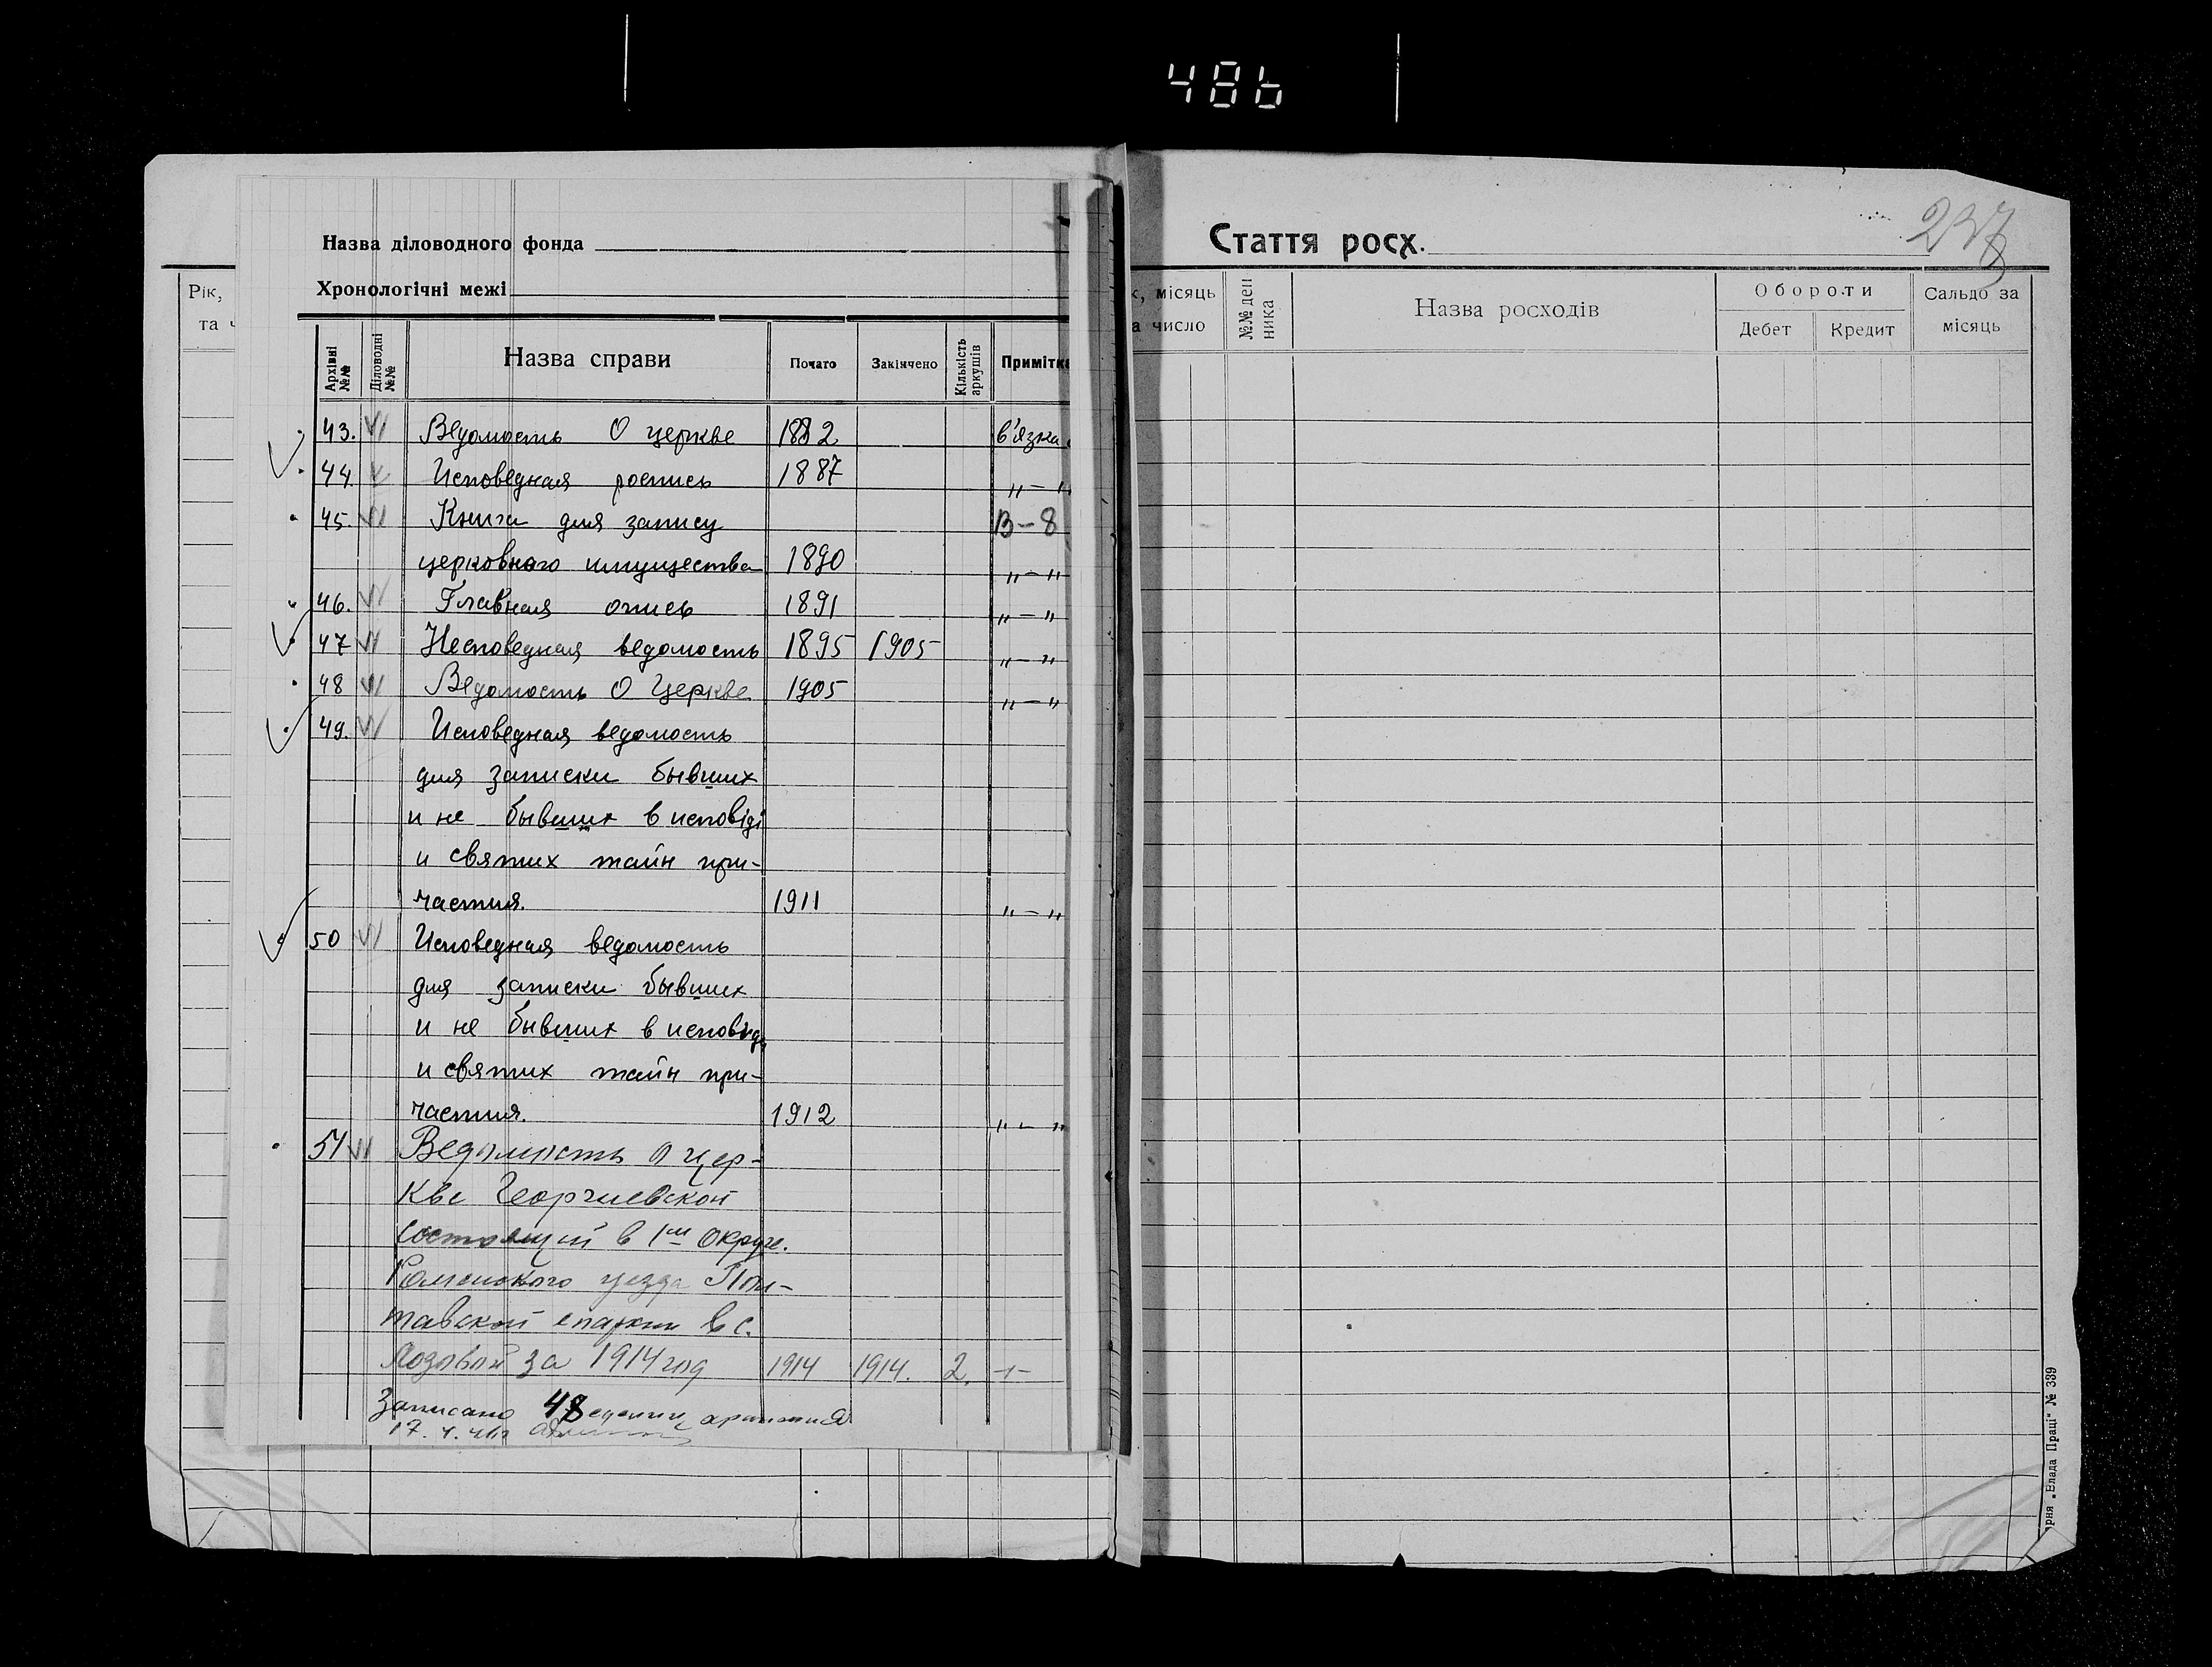 486
Назва діловодного фонда
Хронологічні межі
Рік,
та ч
Архівні №№
Діловодні №№
Назва справи
Почато
Закінчено
Кількість аркушів
Примітка
43. Ведомость О церкве 1882 в'язка
44. Исповедная роспись 1887 „ — „
45. Книга для запису В – 8
церковного имущества 1890 „ — „
46. Главная опись 1891 „ — „
47 Исповедная ведомость 1895 1905 „ — „
48 Ведомость О Церкве 1905 „ — „
49. Исповедная ведомость
для записки бывших
и не бывших в исповіді
и святих тайн при-
частия. 1911 „ — „
50 Исповедная ведомость
для записки бывших
и не бывших в исповіди
и святих тайн при-
частия. 1912 „ — „
51 Ведомость о цер-
кве Георгиевской
состоящей в 1м округе.
Роменского уезда Пол-
тавской епархии в с.
Лозовой за 1914 год 1914 1914. 2. -"-
Записано 48
17. 4.
Стаття росх.
237
к, місяць
а число
№№ ден
ника
Назва росходів
Обороти
Дебет
Кредит
Сальдо за
місяць
рня „Влада Праці" № 339